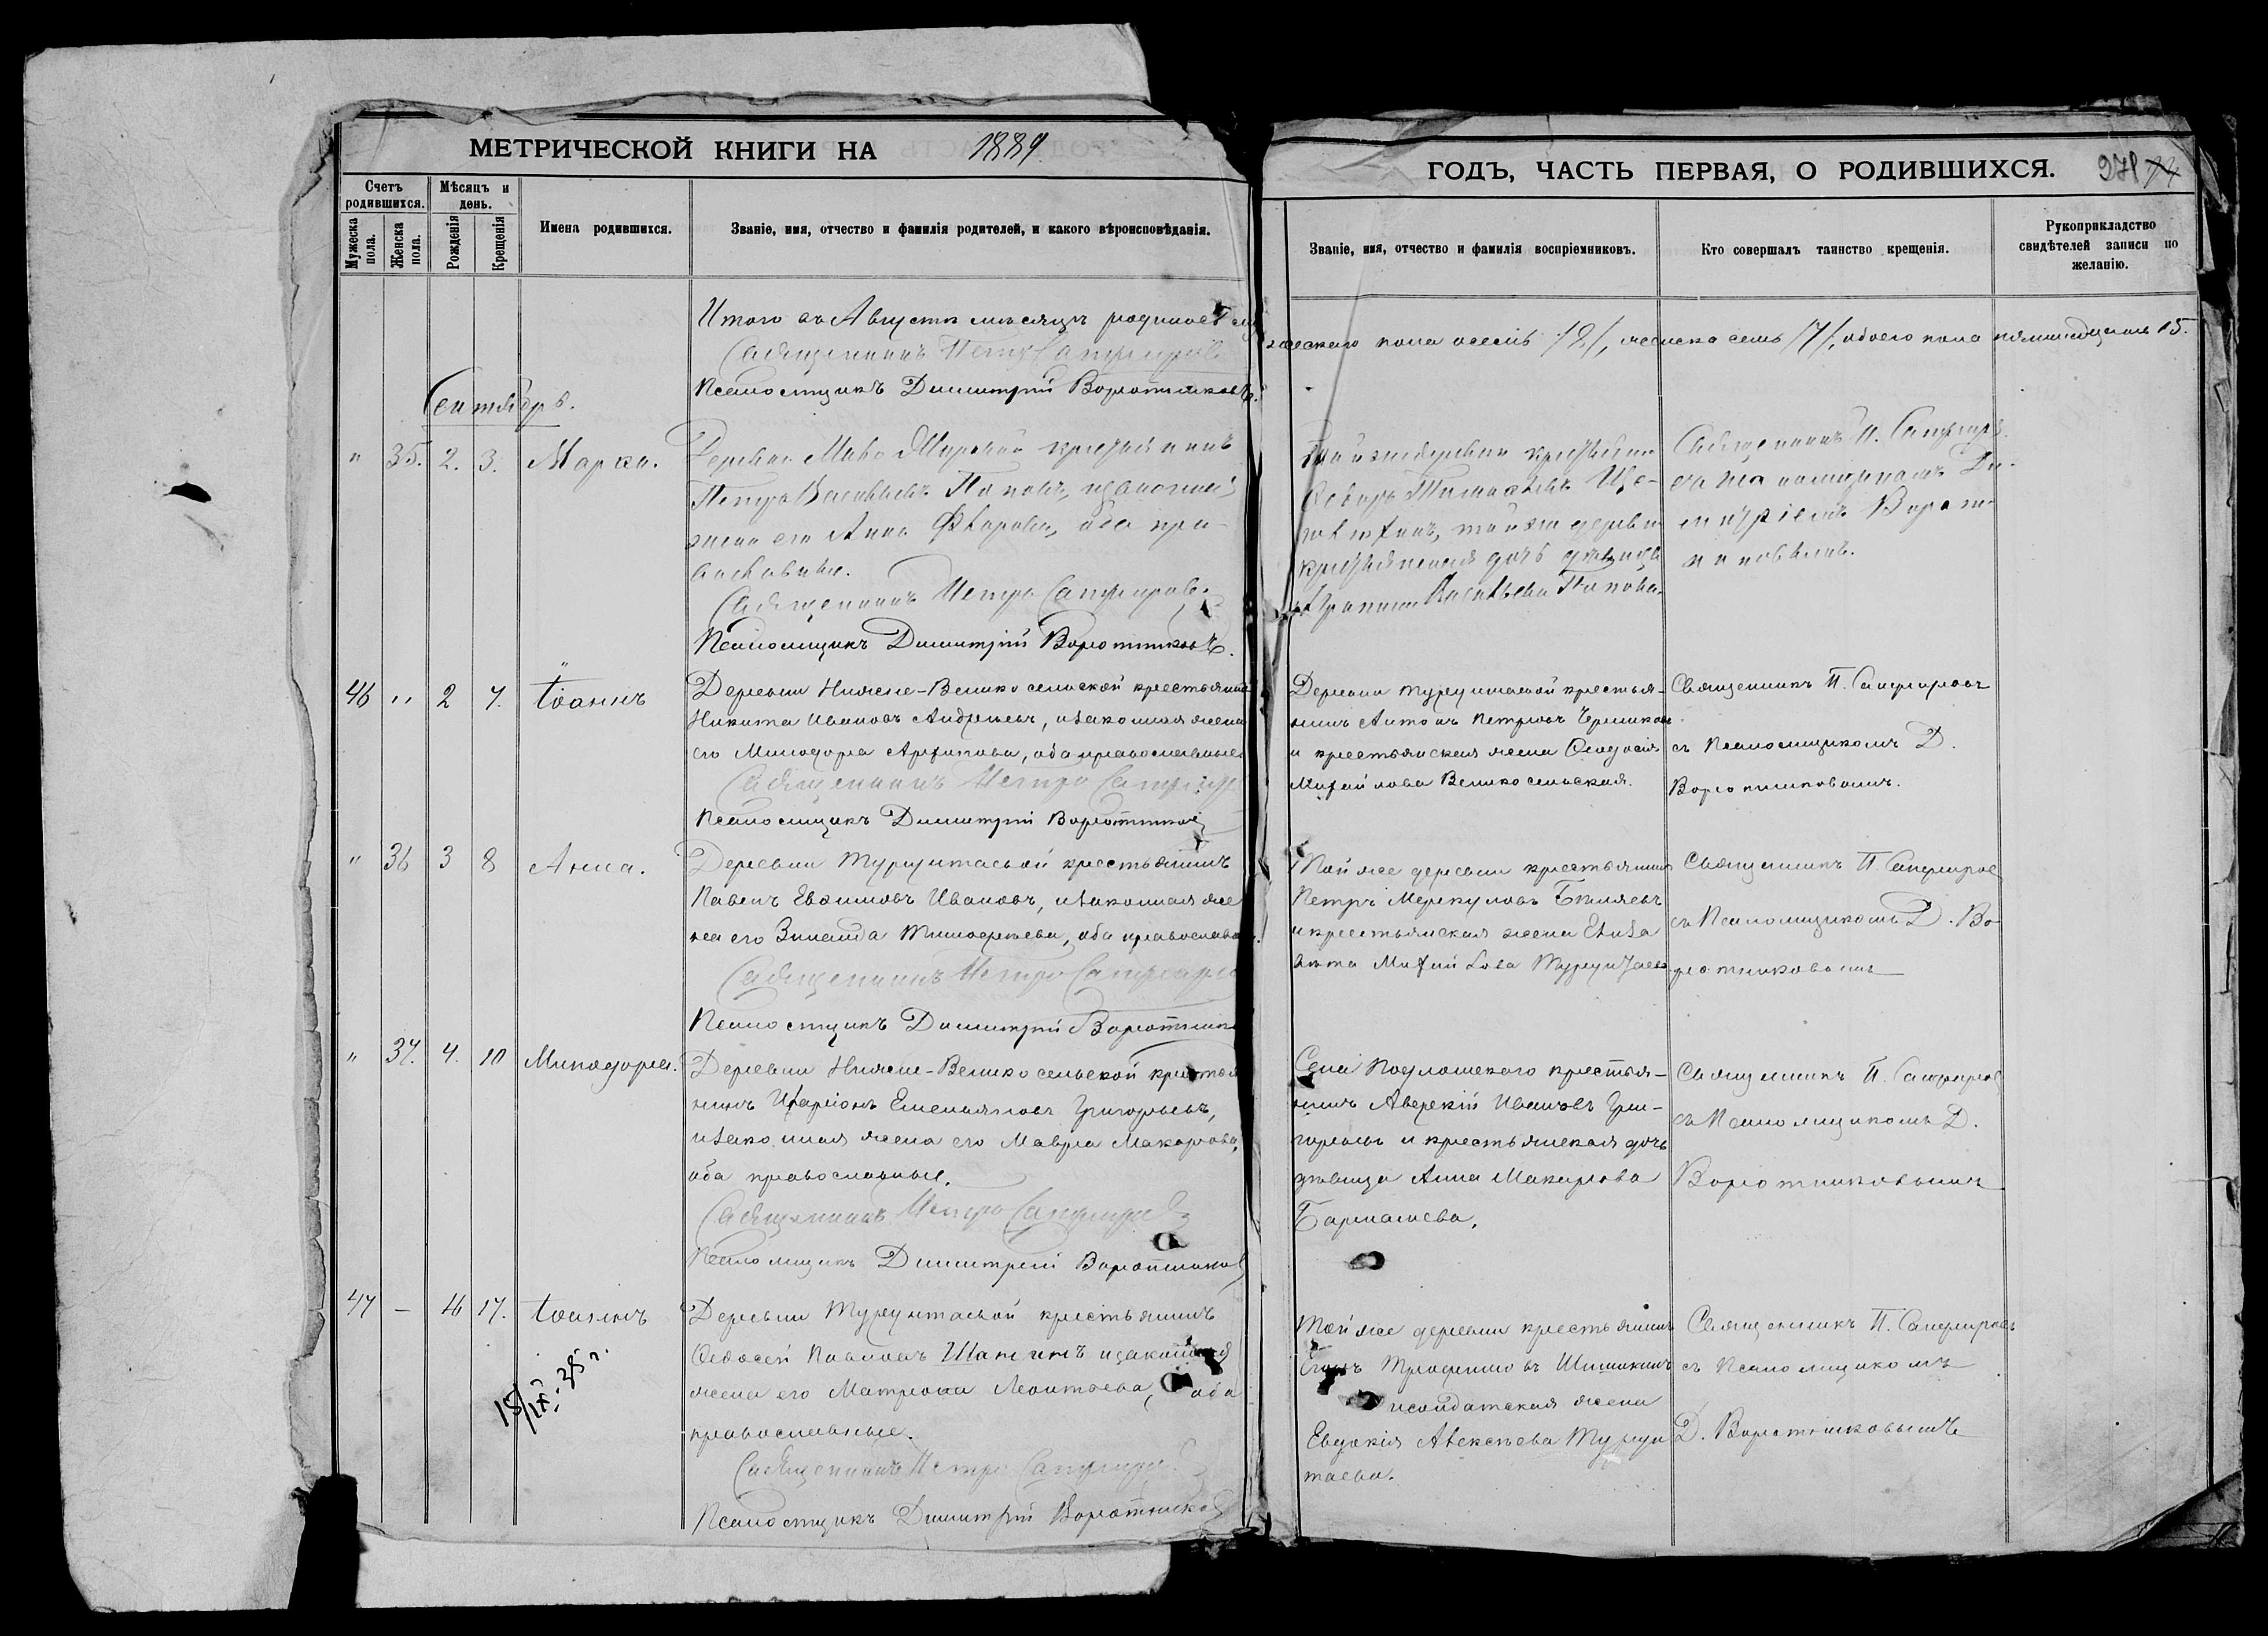 МЕТРИЧЕСКОЙ КНИГИ НА 1889
ГОДЪ, ЧАСТЬ ПЕРВАЯ, О РОДИВШИХСЯ.
Счетъ родившихся.
Мужеска пола.
Женска пола.
Мѣсяцъ и день.
Рожденія
Крещенія
Имена родившихся.
Званіе, имя, отчество и фамилія родителей, и какого вѣроисповѣданія.
Званіе, имя, отчество и фамилія воспріемниковъ.
Кто совершалъ таинство крещенія.
Рукоприкладство свидѣтелей записи по желанію.
Итого въ Августѣ мѣсяцѣ родилось
пола восемь /8/, женска семь /7/, обоего пола пятнадцать 15.
Священникъ Петръ Сапфировъ
Псаломщикъ Димитрій Воротниковъ.
Сентябрь.
" 35. 2. 3.
крестьянинъ
Петръ Васильевъ Поповъ, и законная
жена его Анна Ѳедорова, оба пра-
вославные.
Священникъ Петръ Сапфировъ.
Псаломщикъ Димитрій Воротниковъ.
Той же деревни крестьянинъ
той же деревни
крестьянская дочь дѣвица
Васильева Попова.
Священникъ П. Сапфировъ
съ псаломщикомъ Ди-
митріемъ Ворот-
никовымъ.
46 " 2 7. Іоаннъ
Деревни Нижне-Великосельской крестьянинъ
Никита Ивановъ Андреевъ, и законная жена
его Минодора Архипова, оба православные
Священникъ Петръ Сапфировъ
Псаломщикъ Димитрій Воротниковъ
Деревни Турунтаевой крестья-
нинъ Антонъ Петровъ
и крестьянская жена Ѳеодосія
Михайлова Великосельская.
Священникъ П. Сапфировъ
съ Псаломщикомъ Д.
Воротниковымъ.
" 36 3 8 Анна.
Деревни Турунтаевой крестьянинъ
Павелъ Евѳимовъ Ивановъ, и законная же
на его Зинаида Тимофеева, оба православн.
Священникъ Петръ Сапфировъ
Псаломщикъ Димитрій Воротник
Той же деревни крестьянинъ
Петръ Меркуловъ Бѣляевъ
и крестьянская жена Елиза
вета Михайлова Турунтаева
Священникъ П. Сапфиров
съ Псаломщикомъ Д. Во-
ротниковымъ
" 37. 4. 10 Минодора.
Деревни Нижне-Великосельской крестья
нинъ Иларіонъ Емельяновъ Григорьевъ,
и законная жена его Мавра Макарова,
оба православные.
Священникъ Петръ Сапфировъ
Псаломщикъ Димитрій Воротников
крестья-
нинъ Аверкій Ивановъ Гри-
горьевъ и крестьянская дочь
дѣвица Анна Макарова
Священникъ П. Сапфиров
съ Псаломщикомъ Д.
Воротниковымъ
47 — 16 17. Іоаннъ
Деревни Турунтаевой крестьянинъ
Ѳедосей Павловъ Шангинъ и законная
жена его Матрона Леонтьева, оба
православные.
Священникъ Петръ Сапфиров
Псаломщикъ Димитрій Воротников
Той же деревни крестьянинъ
Трофимовъ Шишкинъ
и солдатская жена
Евдокія Алексѣева Турун
таева.
Священникъ П. Сапфировъ
съ Псаломщикомъ
Д. Воротниковымъ